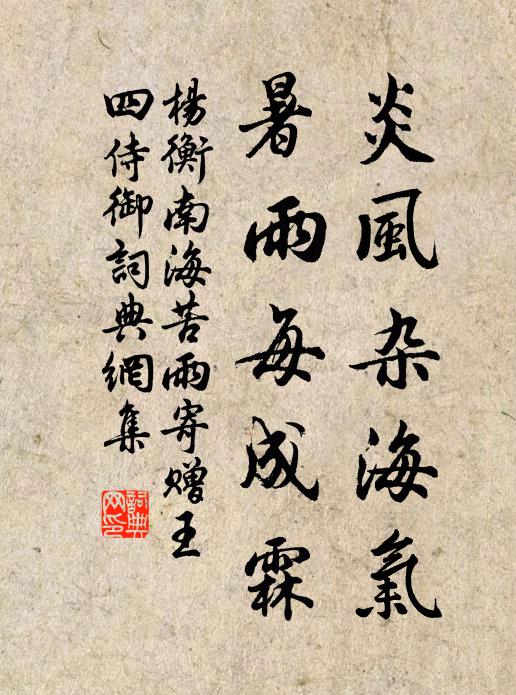 炎風杂海氣
暑雨每成霖
楊衡南海苦雨寄赠王
四侍御詞典網集
詞典网印